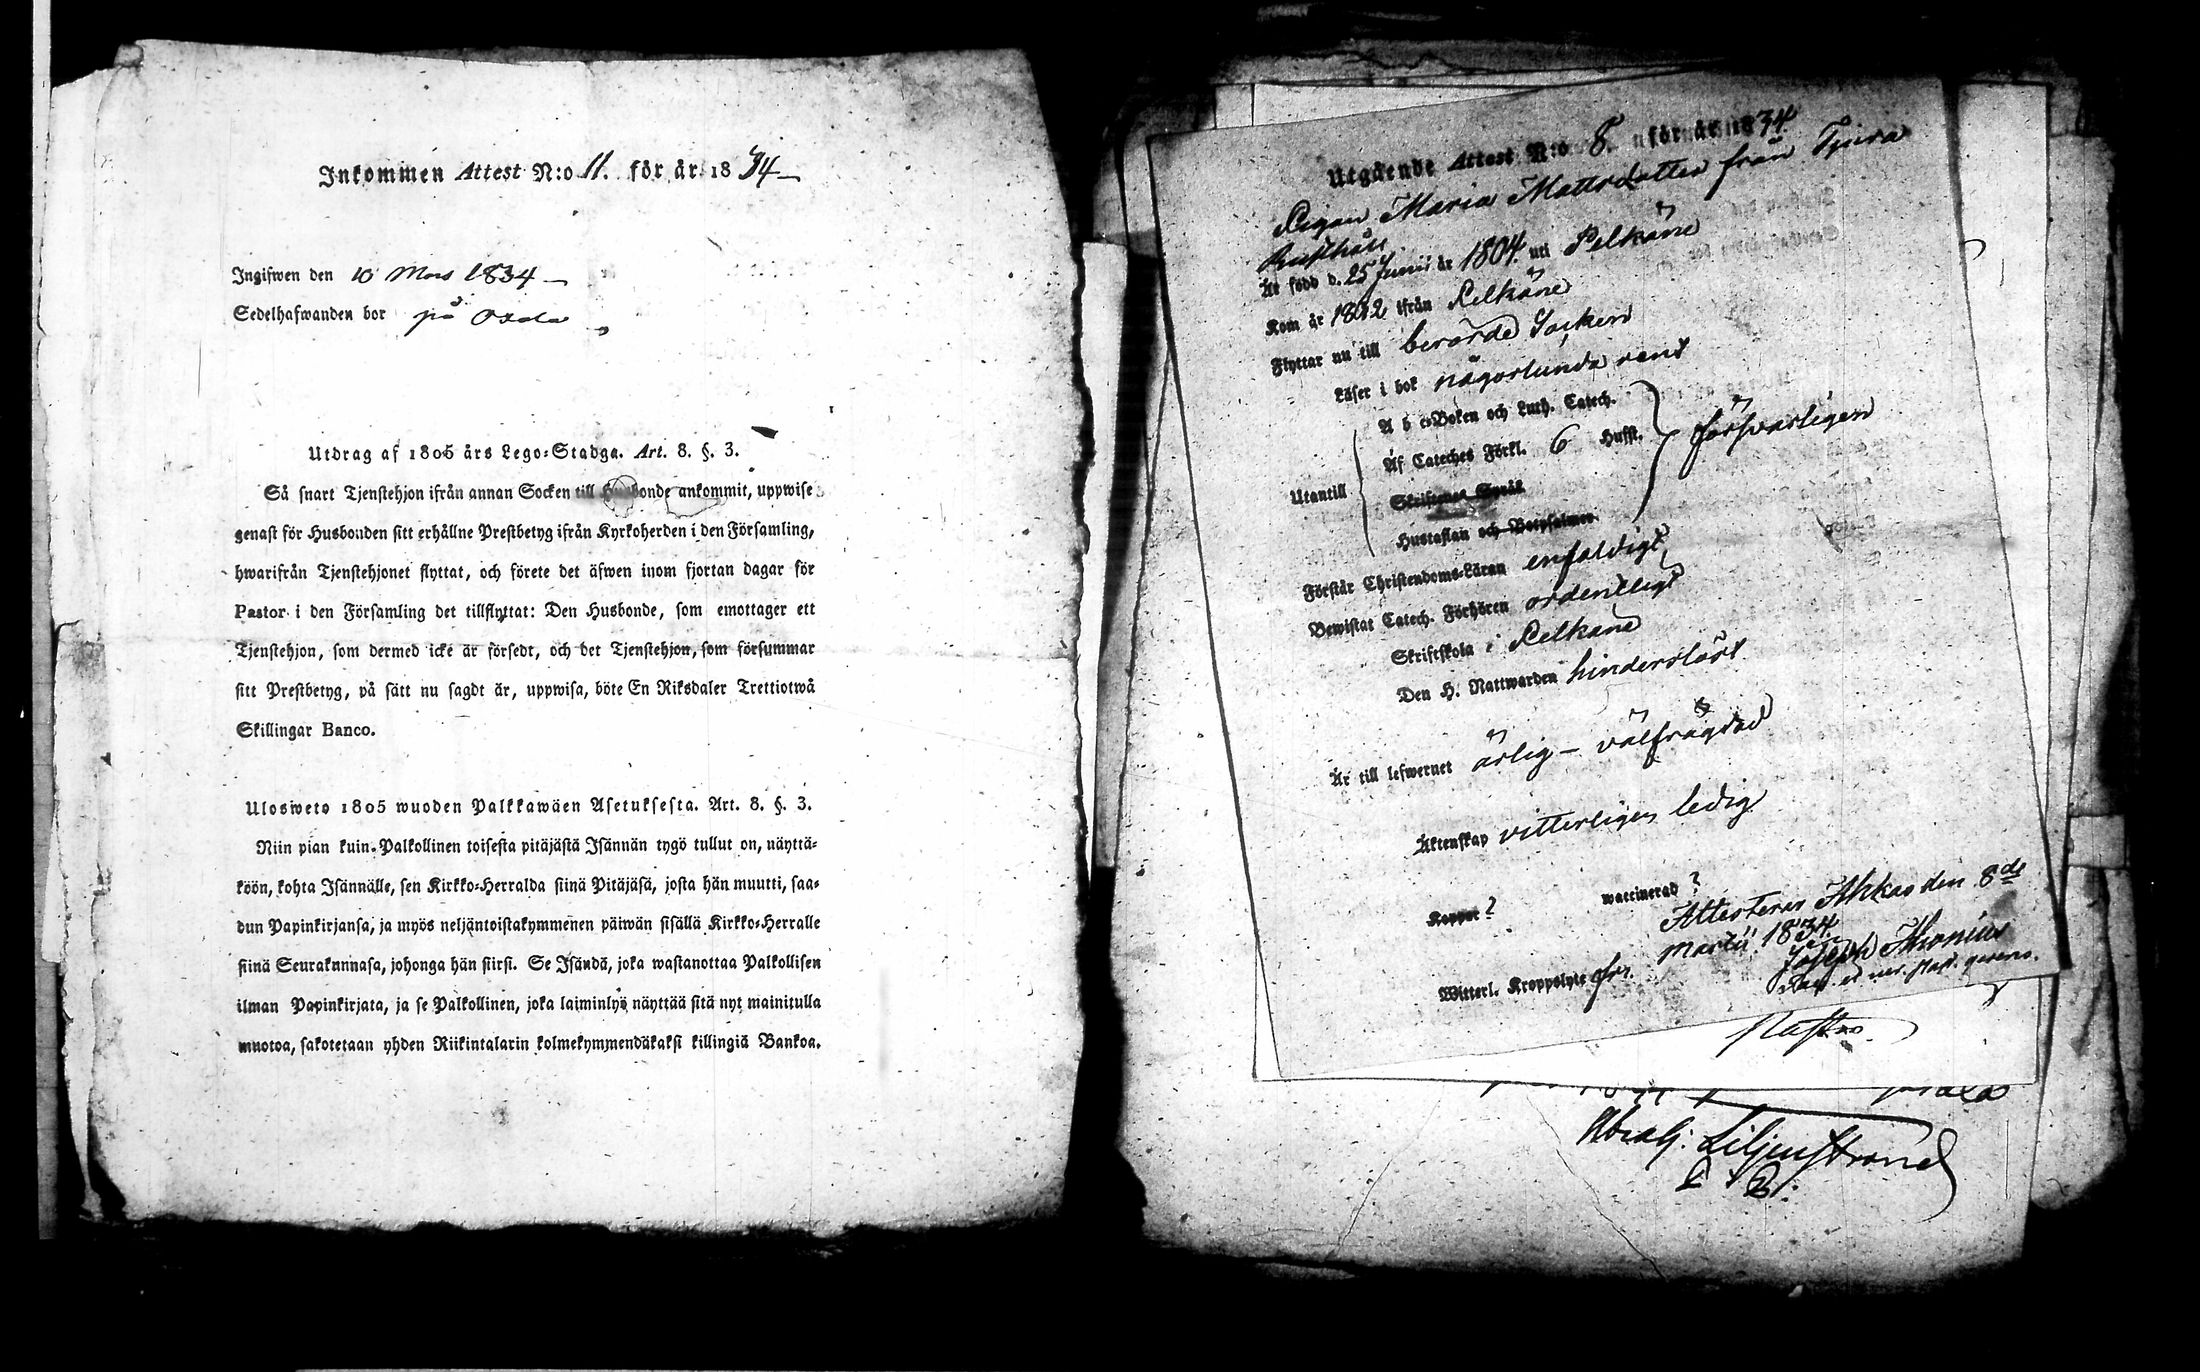 Inkommen Attest N:o 11. för år 1834 —
Ingifwen den 10 Mars 1834 —
Sedelhafwanden bor på
Utdrag af 1805 års Lego-Stadga. Art. 8. §. 3.
Så snart Tjenstehjon ifrån annan Socken till Husbonde ankommit, uppwise
genast för Husbonden sitt erhållne Prestbetyg ifrån Kyrkoherden i den Församling,
hwarifrån Tjenstehjonet flyttat, och förete det äfwen inom fjortan dagar för
Pastor i den Församling det tillflyttat: Den Husbonde, som emottager ett
Tjenstehjon, som dermed icke är försedt, och det Tjenstehjon, som försummar
sitt Prestbetyg, på sätt nu sagdt är, uppwisa, böte En Riksdaler Trettiotwå
Skillingar Banco.
Ulosweto 1805 wuoden Palkkawäen Asetuksesta. Art. 8. §. 3.
Niin pian kuin Palkollinen toisesta pitäjästä Isännän tygö tullut on, näyttä-
köön, kohta Isännälle, sen Kirkko-Herralda siinä Pitäjäsä, josta hän muutti, saa-
dun Papinkirjansa, ja myös neljäntoistakymmenen päiwän sisällä Kirkko-Herralle
siinä Seurakunnasa, johonga hän siirsi. Se Isändä, joka wastanottaa Palkollisen
ilman Papinkirjata, ja se Palkollinen, joka laiminlyö näyttää sitä nyt mainitulla
muotoa, sakotetaan yhden Riikintalarin kolmekymmendäkaksi killingiä Bankoa.
Utgående Attest N:o 8. för år 1834.
Pigan Maria Mattsdotter från Tjura
Rusthåll
Är född d. 25 Junii år 1804. uti Pelkäne
Kom år 1832 ifrån Pelkäne
Flyttar nu till berörde Socken
Läser i bok någorlunda rent
A b c-Boken och Luth. Catech.
Af Cateches Förkl. 6 Hufst. försvarligen
Utantill
Skriftenes Språk
Hustaflan och Botpsalmer
Förstår Christendoms-Läran enfaldigt
Bewistat Catech. Förhören ordentligt
Skriftskola i Pelkäne
Den H. Nattwarden hinderslöst
Är till lefwernet ärlig – välfrägdad
Äktenskap vitterligen ledig
Koppor ? waccinerad ?
Attesteras Akkas den 8de
Martii 1834.
Witterl. Kroppslyte fri.
Joseph
Abrah. Liljenstrand